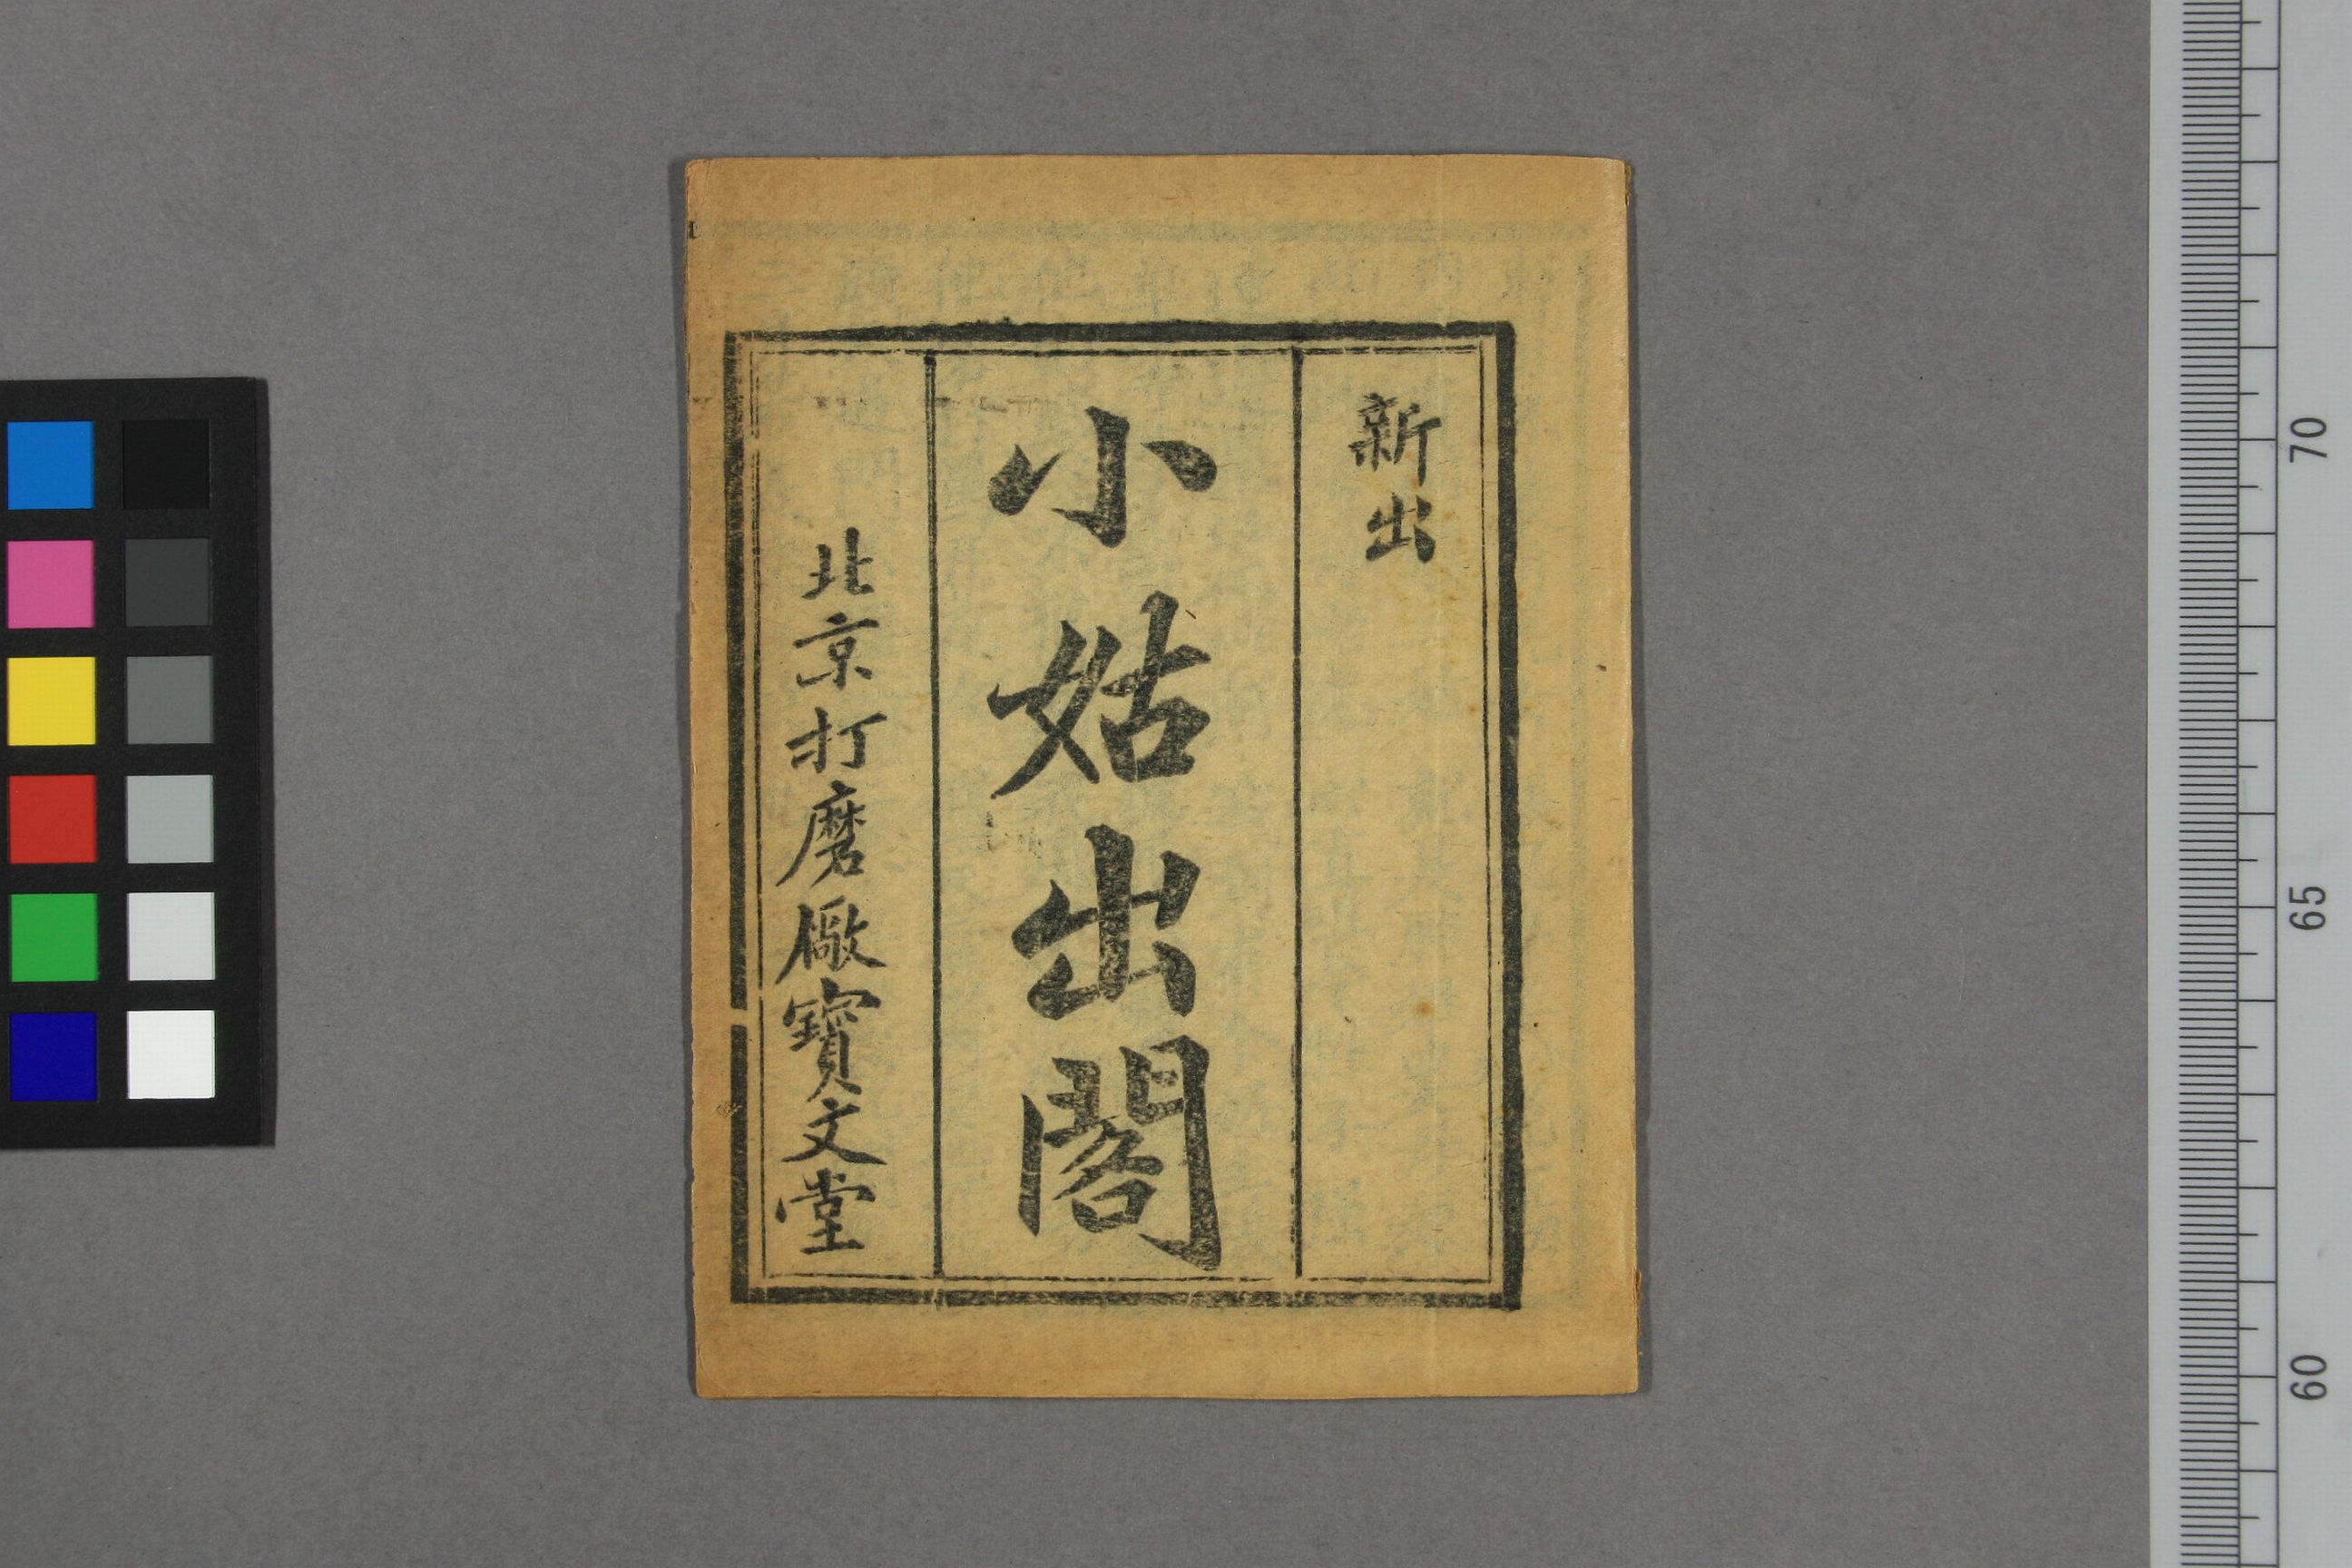 新出
小姑出閣
北京打磨廠寶文堂
70
65
60